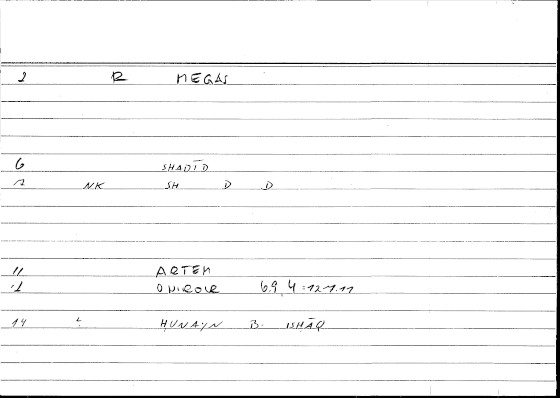 2 R MEGAS
6 SHADĪD
7 NK SH D D
11 ARTEM
ONIROCR 69,4 = 121.11
14 HUNAYN B. ISHĀQ